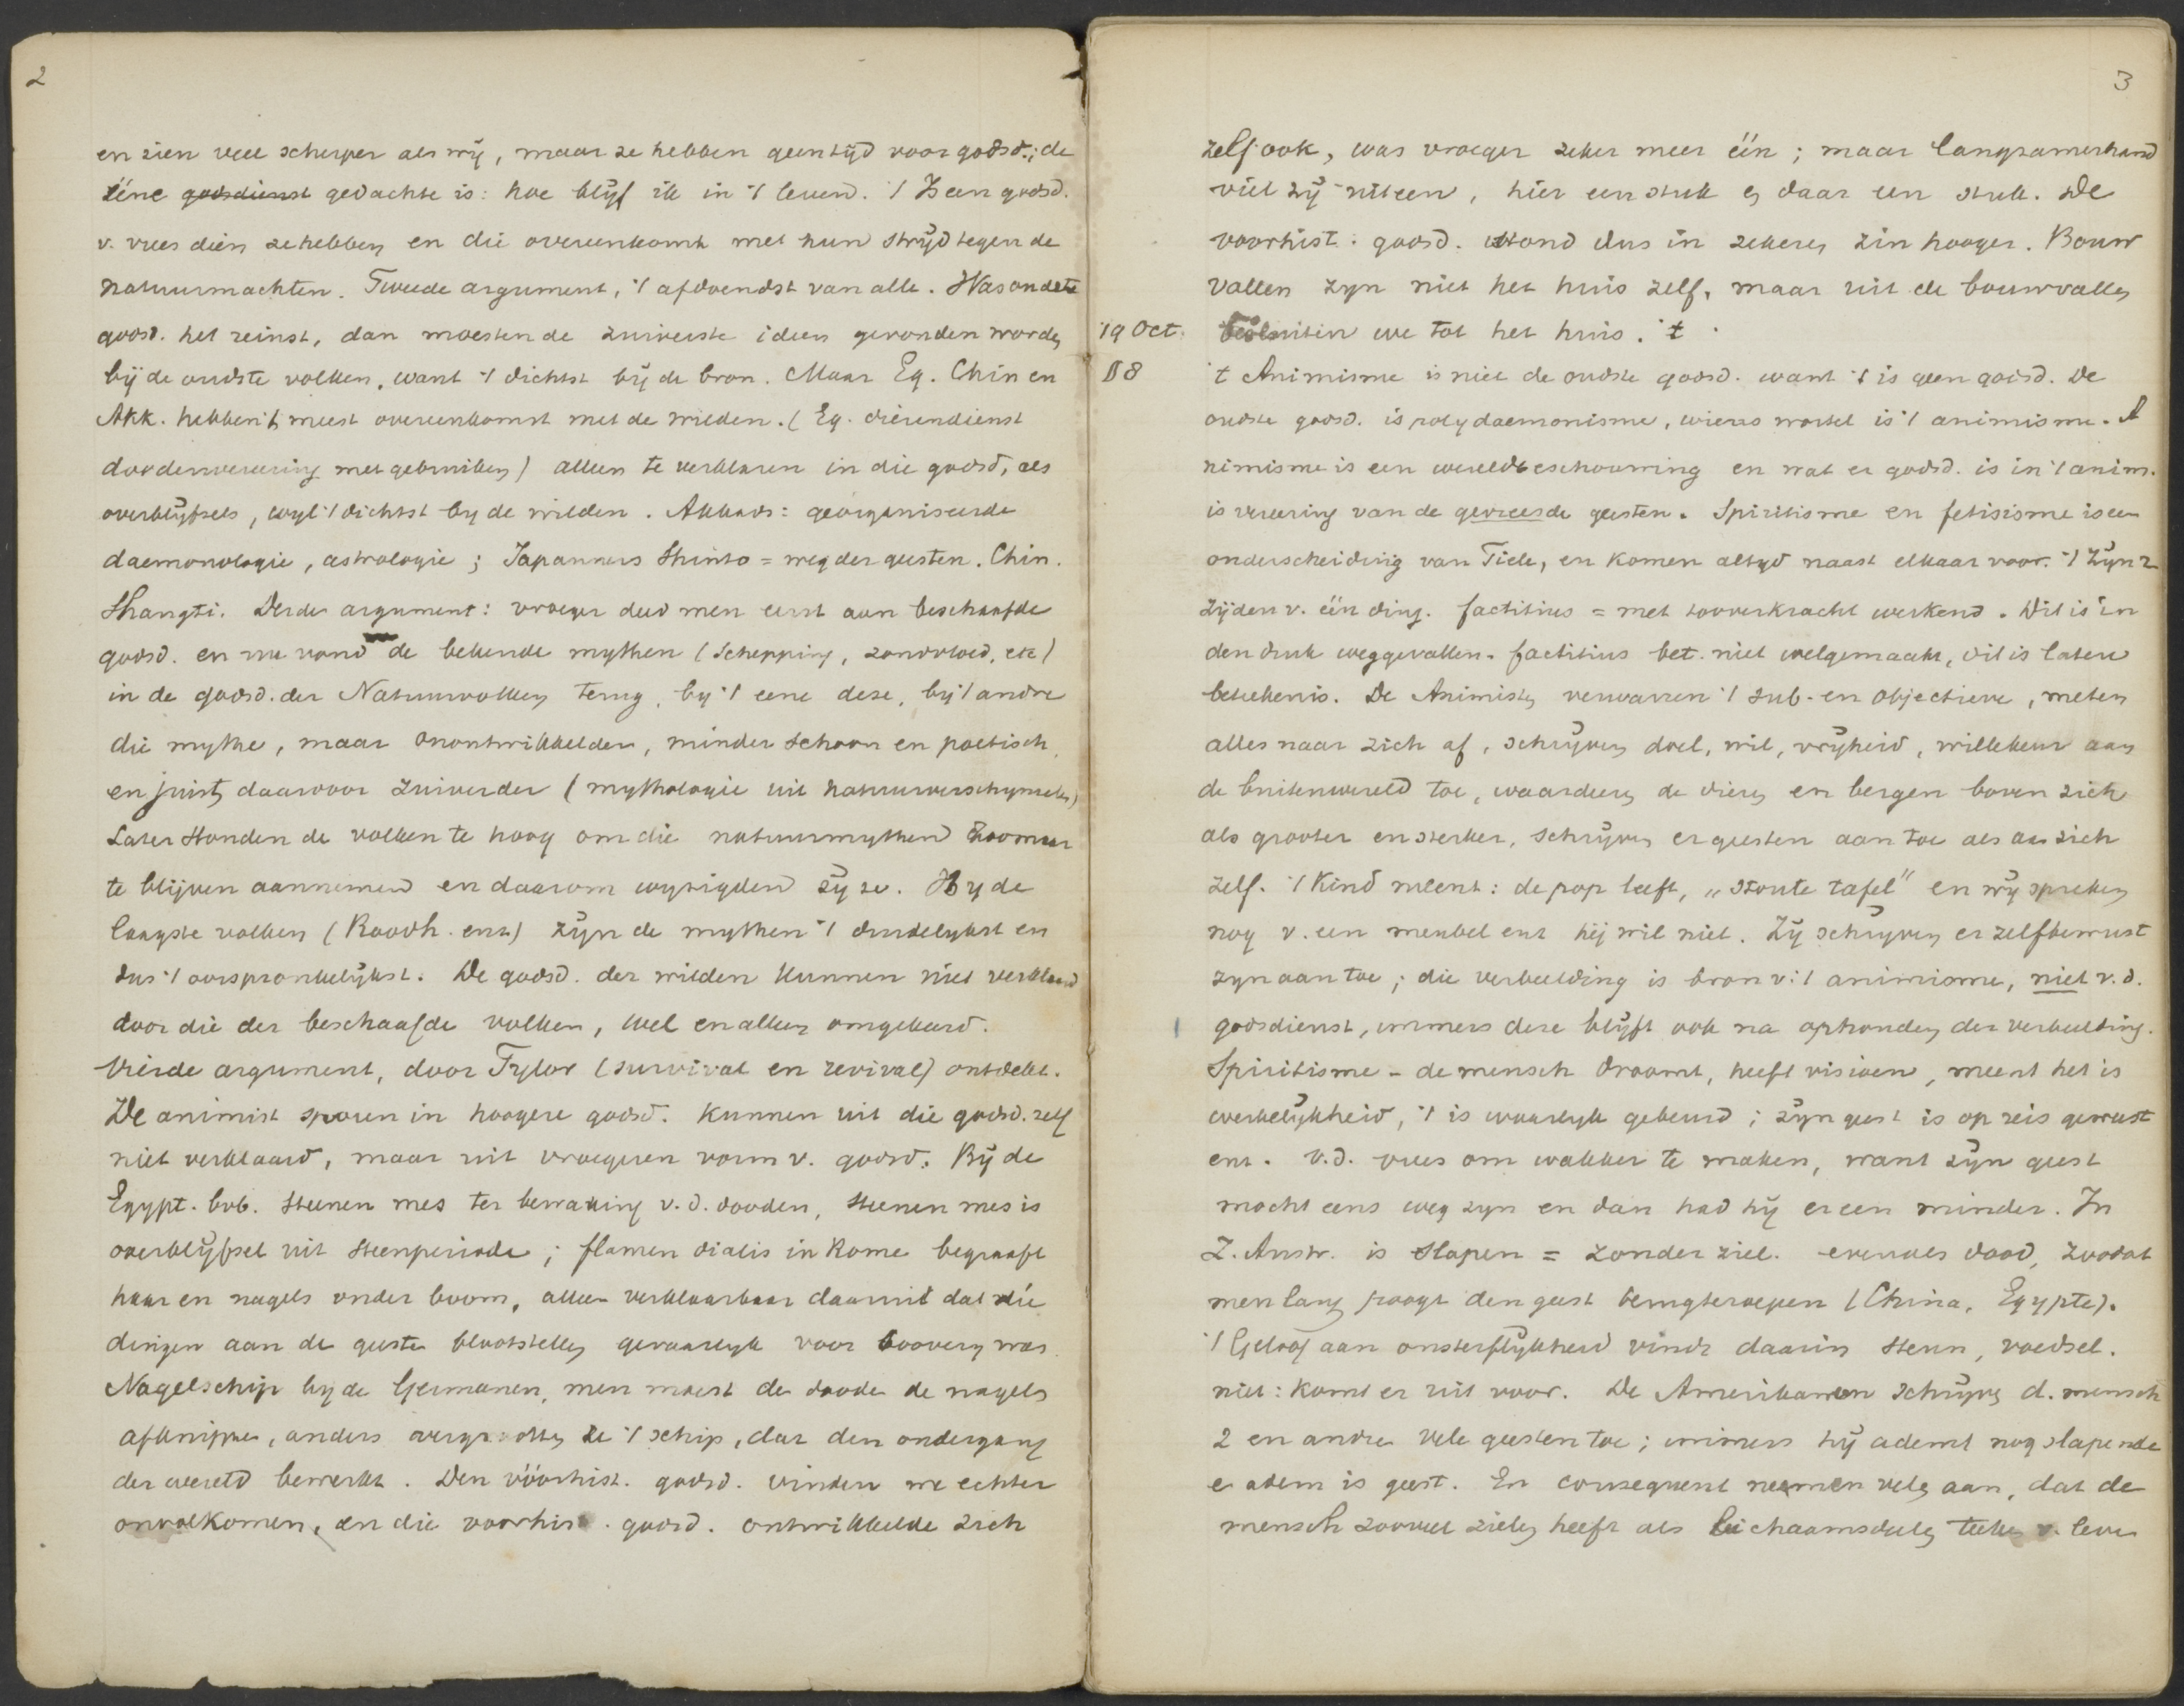 2
en zien veel scherper als wij, maar ze hebben geen tijd voor godsd.; de
ééne godsdienst gedachte is: hoe blijf ik in 't leven. 't Is een godsd.
v. vrees dien ze hebben en die overeenkomt met hun strijd tegen de
natuurmachten. Tweede argument, 't afdoendst van alle. Was oudste
godsd. het reinst, dan moesten de zuiverste ideen gevonden worden
bij de oudste volken, want 't dichtst bij de bron. Maar Eg. Chin en
Akk. hebben 't meest overeenkomst met de wilden. (Eg. dierendienst
doodenvereering met gebruiken) alleen te verklaren in die godsd, als
overblijfsels, wyl 't dichtst by de wilden. Akkads: georganiseerde
daemonologie, astrologie; Japanners Shinto = weg der geesten. Chin.
Shangti. Derde argument: vroeger deed men eerst aan beschaafde
godsd. en nu vond de bekende mythen (Schepping, zondvloed, etc)
in de godsd. der Natuurvolken terug, by 't eene deze, bij 't andre
die mythe, maar onontwikkelder, minder schoon en poëtisch,
en juist daarvoor zuiverder (mythologie uit natuurverschynselen)
Later stonden de volken te hoog om die natuurmythen zoomaar
te blijven aannemen en daarom wyzigden zy ze. By de
laagste volken (Roodh. enz) zijn de mythen 't duidelykst en
dus 't oorspronkelijkst. De godsd. der wilden kunnen niet verklaard
door die der beschaafde volken, wel en alleen omgekeerd.
Vierde argument, door Tylor (survival en revival) ontdekt.
De animist sporen in hoogere godsd. kunnen uit die godsd. zelf
niet verklaard, maar uit vroegeren vorm v. godsd. Bij de
Egypt. bvb. steenen mes ter bewaking v.d. dooden, steenen mes is
overblijfsel uit steenperiode; flamen dialis in Rome begraaft
haar en nagels onder boom, alleen verklaarbaar daaruit dat die
dingen aan de geesten blootstellen gevaarlyk voor toovery was.
Nagelschip by de Germanen, men moest de doode de nagels
afknippen, anders ze 't schip, dat den ondergang
der wereld bewerkt. Den vóórhist. godsd. vinden we echter
onvolkomen, en die voorhist. godsd. ontwikkelde zich
3
zelf ook, was vroeger zeker meer één; maar langzamerhand
viel zij uiteen, hier een stuk en daar een stuk. De
voorhist. godsd. stond dus in zekeren zin hooger. Bouw
vallen zyn niet het huis zelf, maar uit de bouwvallen
19 Oct. besluiten we tot het huis. 't
88 't Animisme is niet de oudste godsd. want 't is geen godsd. De
oudste godsd. is polydaemonisme, wiens wortel is 't animisme. A
nimisme is een wereldbeschouwing en wat er godsd. is in 't anim.
is vereering van de gevreesde geesten. Spiritisme en fetisisme is een
onderscheiding van Tiele, en komen altyd naast elkaar voor. 't Zijn 2
zijden v. één ding. factitius = met tooverkracht werkend. Dit is in
den druk weggevallen. factitius bet. niet welgemaakt, dit is latere
beteekenis. De Animisten verwarren 't sub- en objectieve, meten
alles naar zich af, schrijven doel, wil, vrijheid, willekeur aan
de buitenwereld toe, waardeeren de dieren en bergen boven zich
als grooter en sterker, schrijven er geesten aan toe als aan zich
zelf. 't Kind meent: de pop leeft, „stoute tafel" en wij spreken
nog v. een meubel enz hij wil niet. Zij schrijven er zelfbewust
zyn aan toe; die verbeelding is bron v. 't animisme, niet v.d.
godsdienst, immers deze blijft ook na ophouden der verbeelding.
Spiritisme - de mensch droomt, heeft visioen, meent het is
werkelijkheid, 't is waarlyk gebeurd; zijn geest is op reis geweest
enz. v.d. vrees om wakker te maken, want zijn geest
mocht eens weg zyn en dan had hij er een minder. In
Z. Austr. is slapen = zonder ziel. evenals dood, zoodat
men lang poogt den geest terugteroepen (China, Egypte).
't Geloof aan onsterflijkheid vindt daarin steun, voedsel.
niet: komt er uit voor. De Amerikanen schrijven d. mensch
2 en andre vele geesten toe; immers hij ademt nog slapende
en adem is geest. En consequent neemen velen aan, dat de
mensch zooveel zielen heeft als lichaamsdeelen teeken v. leven